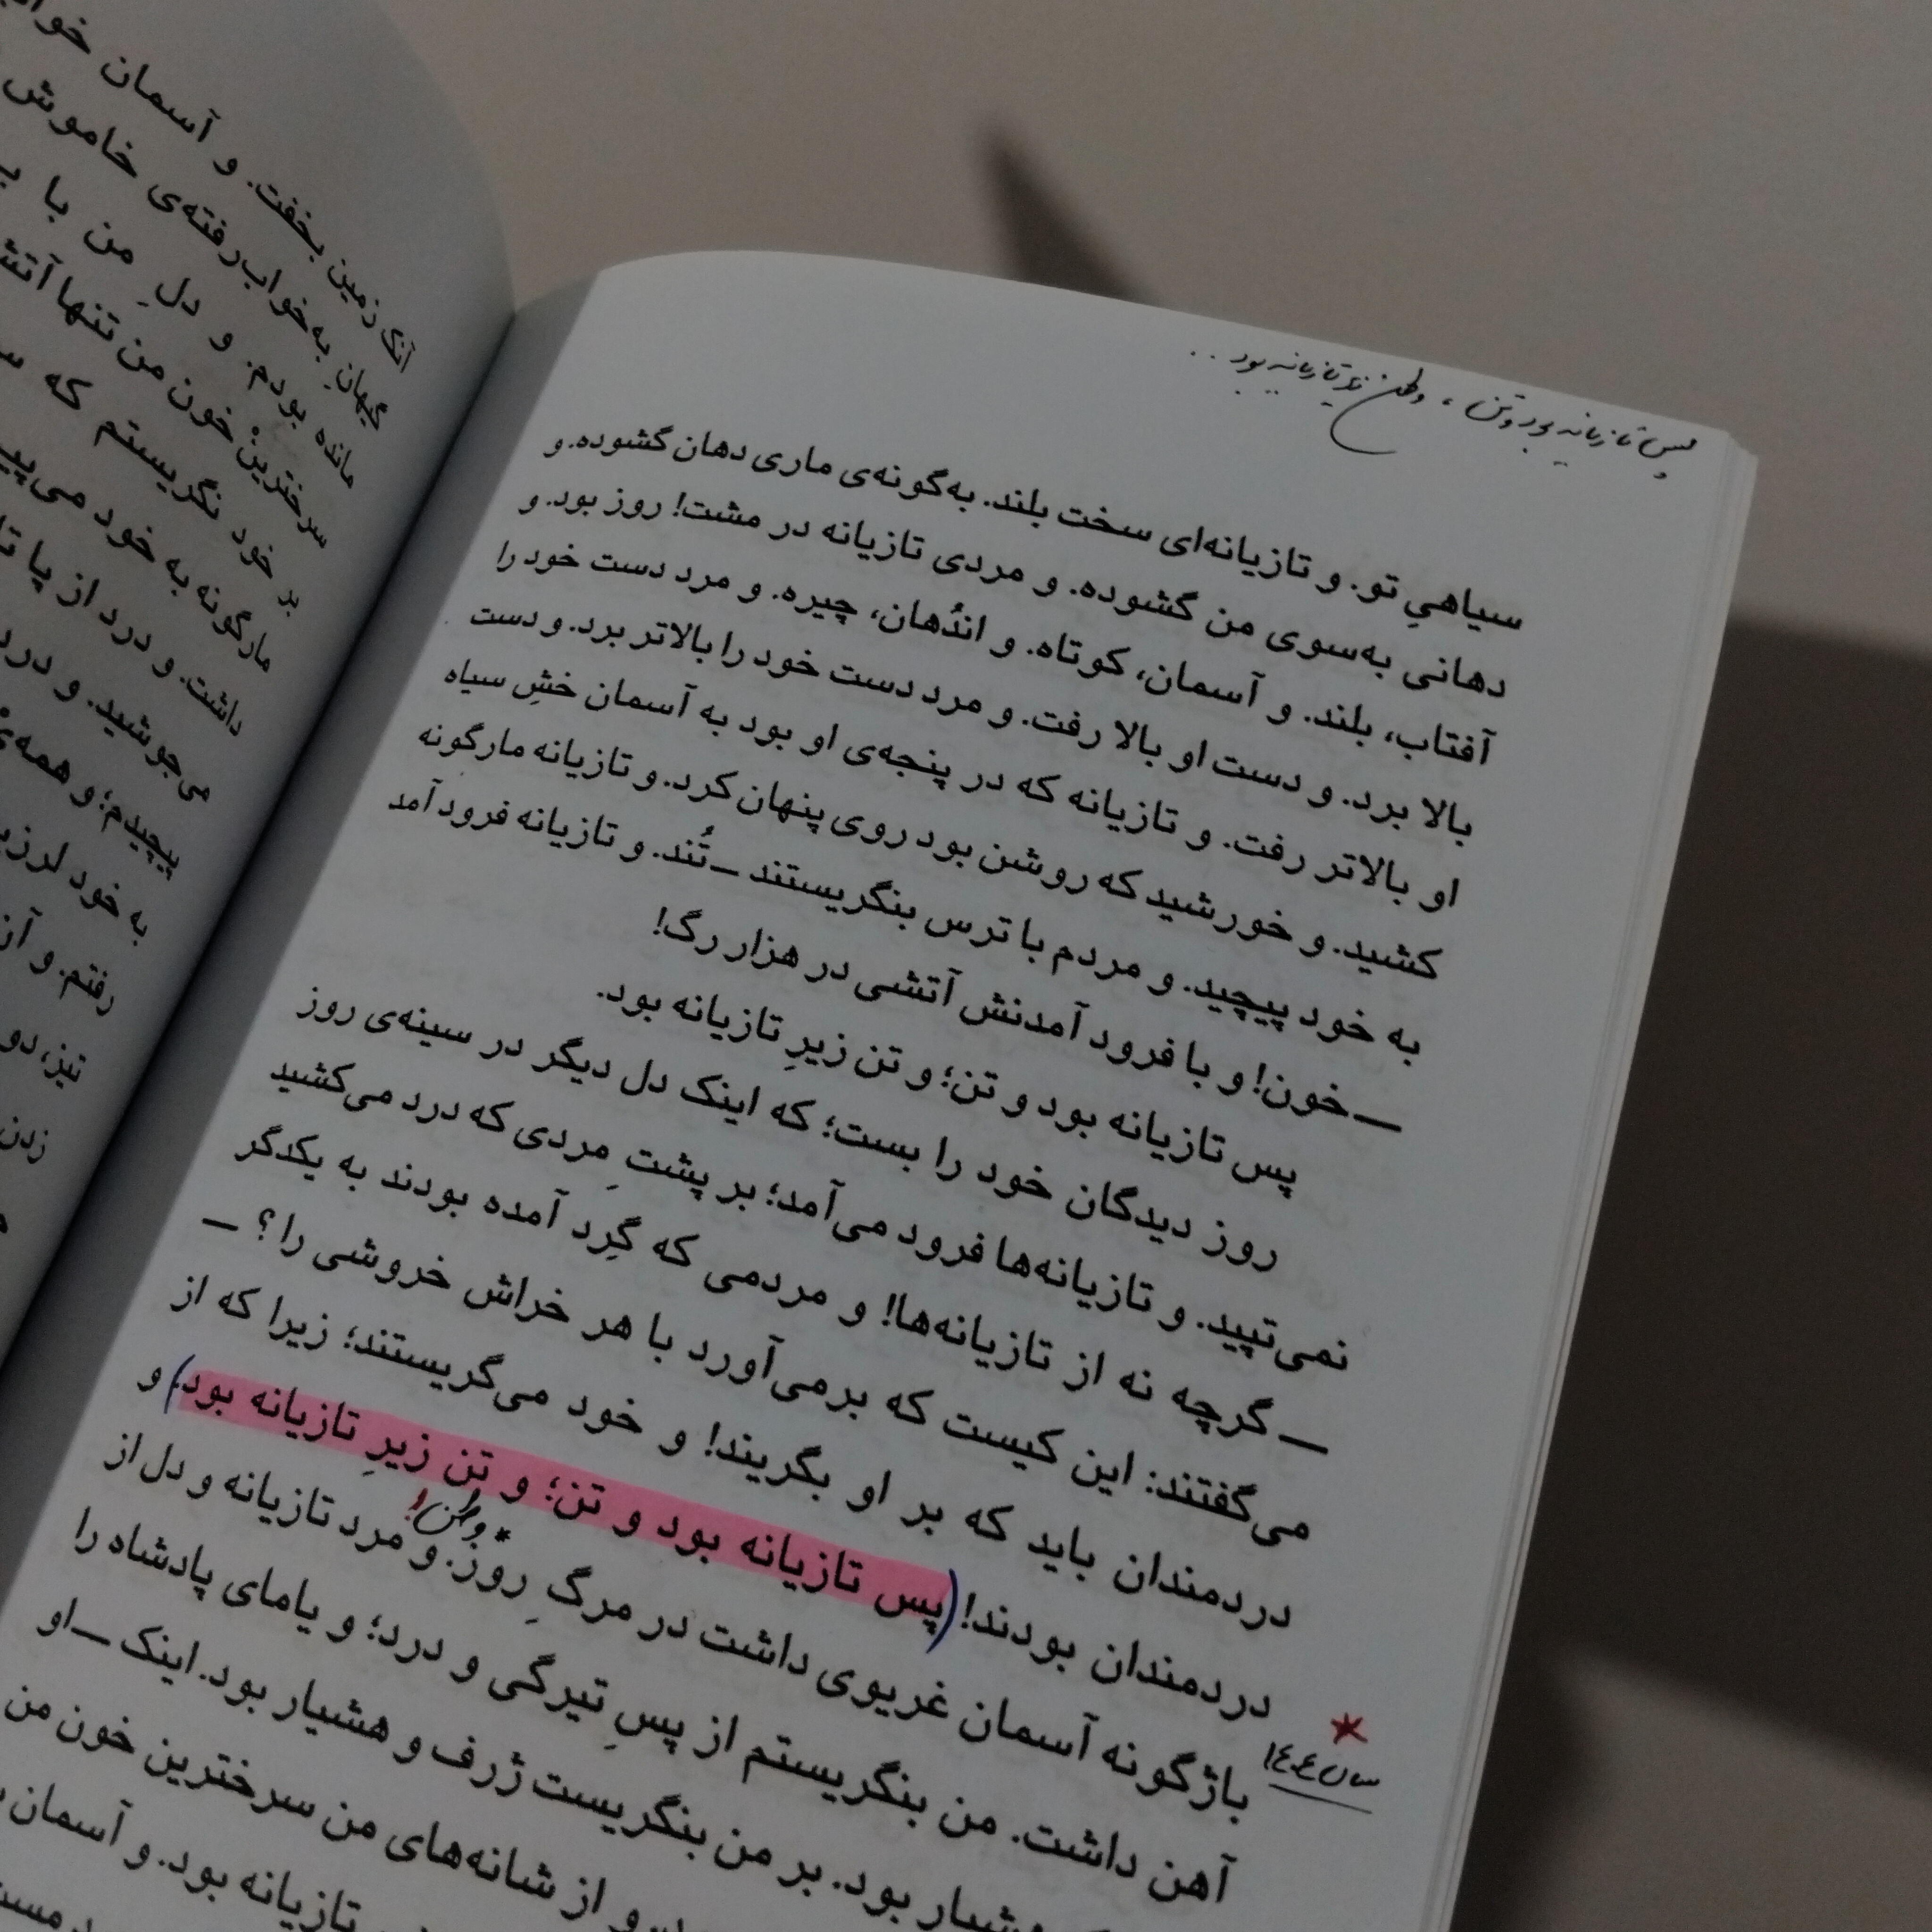 پس تازیانه بود و تن، وطن زیر تازیانه بود..
سیاهیِ تو. و تازیانه‌ای سخت بلند. به‌گونه‌ی ماری دهان گشوده. و
دهانی به‌سوی من گشوده. و مردی تازیانه در مشت! روز بود. و
آفتاب، بلند. و آسمان، کوتاه. و اندُهان، چیره. و مرد دست خود را
بالا برد. و دست او بالا رفت. و مرد دست خود را بالاتر برد. و دست
او بالاتر رفت. و تازیانه که در پنجه‌ی او بود به آسمان خشِ سیاه
کشید. و خورشید که روشن بود روی پنهان کرد. و تازیانه مارگونه
به خود پیچید. و مردم با ترس بنگریستند ــ تُند. و تازیانه فرود آمد
ــ خون! و با فرود آمدنش آتشی در هزار رگ!
پس تازیانه بود و تن؛ و تن زیرِ تازیانه بود.
روز دیدگان خود را بست؛ که اینک دل دیگر در سینه‌ی روز
نمی‌تپید. و تازیانه‌ها فرود می‌آمد؛ بر پشتِ مردی که درد می‌کشید
ــ گرچه نه از تازیانه‌ها! و مردمی که گِرد آمده بودند به یکدگر
می‌گفتند: این کیست که برمی‌آورد با هر خراش خروشی را؟ ــ
دردمندان باید که بر او بگریند! و خود می‌گریستند؛ زیرا که از
دردمندان بودند! (پس تازیانه بود و تن؛ و تن زیرِ تازیانه بود.) و
*وطن!
باژگونه آسمان غریوی داشت در مرگِ روز. و مرد تازیانه و دل از
سال ۱۴۰۴
آهن داشت. من بنگریستم از پسِ تیرگی و درد؛ و یامای پادشاه را
هشیار بود. بر من بنگریست ژرف و هشیار بود. اینک ــ او
و از شانه‌های من سرخترین خون من
تازیانه بود. و آسمان
آنک زمین بخفت. و آسمان
گیهانِ به‌خواب‌رفته‌ی خاموش
مانده بودم. و دلِ من با
سرخترینْ خون من تنها
بر خود نگریستم که
مارگونه به خود
داشت. و درد از پا تا
می‌جوشید. و درد
پیچیدم؛ و همه‌ی
به خود
رفتم. و
تیز، دو
زدن